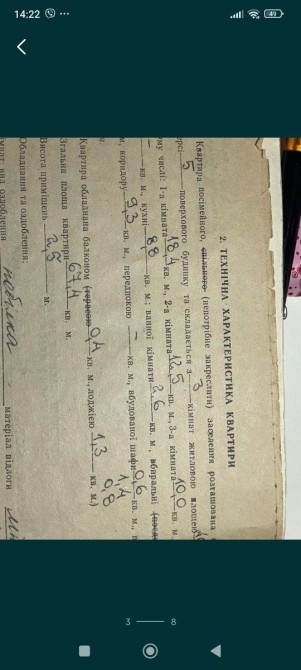 14:22
49
2. ТЕХНІЧНА ХАРАКТЕРИСТИКА КВАРТИРИ
Квартира посімейного, спільного (непотрібне закреслити) заселення розташована
5 поверхового будинку та складається з 3 кімнат житловою площею
му числі: 1-а кімната 18,4 кв. м, 2-а кімната 12,5 кв. м, 3-а кімната 10,0 кв. м.
кв. м, кухні 8,8 кв. м; ванної кімнати 2,6 кв. м, вбиральні
м, коридору 9,3 кв. м, передпокою — кв. м, вбудованої шафи 0,6 кв. м,
1,4
0,8
Квартира обладнана балконом (терасою) 0,4 кв. м, лоджією 1,3 кв. м.)
Згальна площа квартири 67,4 кв. м.
Висота приміщень 2,5 м.
Обладнання та оздоблення:
вид оздоблення побілка матеріал підлоги
3 8